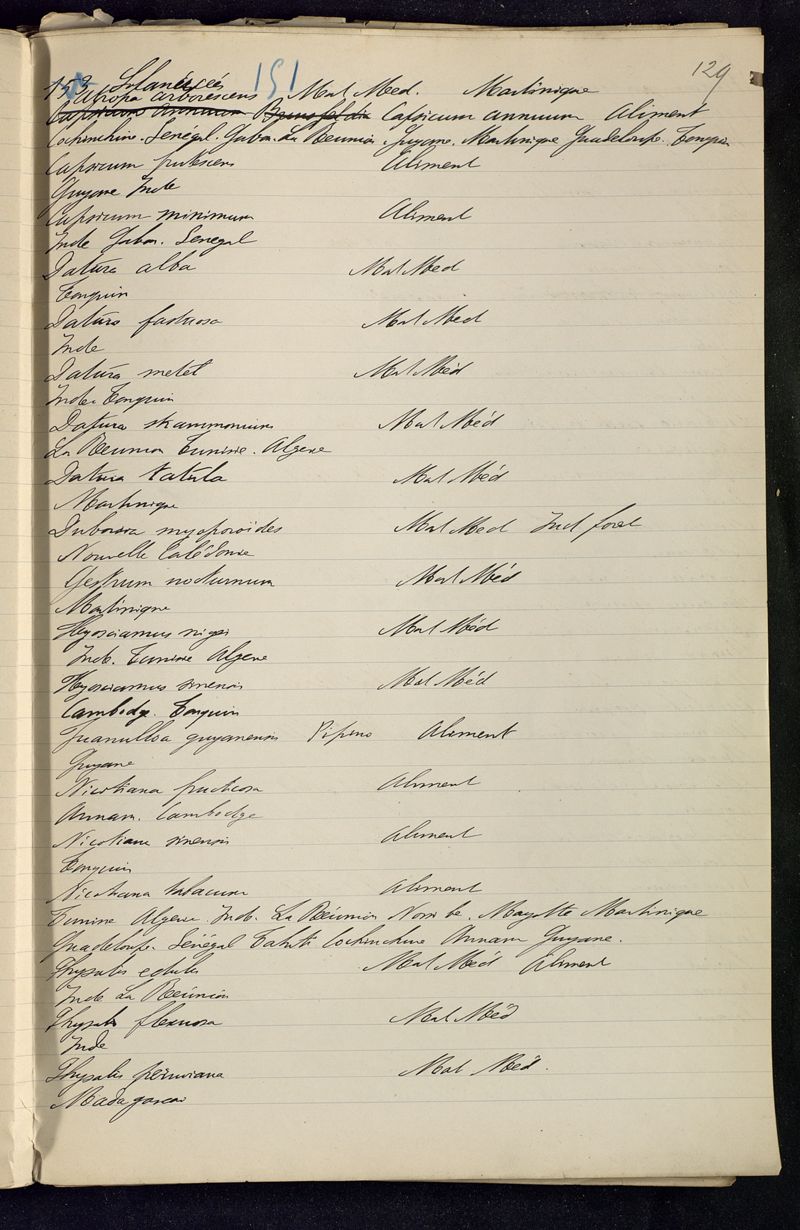 129
152 Solanées 151
Atropa arborescens Mat Med. Martinique
Capsicum annuum Brunsfeldia Capsicum annuum Aliment
Cochinchine. Sénégal. Gabon. La Réunion. Guyane. Martinique Guadeloupe. Tonquin
Capsicum frutescens Aliment
Guyane Inde
Capsicum minimum Aliment
Inde Gabon. Senegal
Datura alba Mat Med
Tonquin
Datura fastuosa Mat Med
Inde
Datura metel Mat Méd
Inde. Tonquin
Datura strammonium Mat Méd
La Réunion Tunisie. Algerie
Datura tatula Mat Méd
Martinique
Duboisia myoporoides Mat Med Ind foret
Nouvelle Calédonie
Cestrum nocturnum Mat Méd
Martinique
Hyosciamus niger Mat Méd
Inde. Tunisie Algerie
Hyosciamus sinensis Mat Méd
Cambodge. Tonquin
Juanulloa guyanensis Pipino Aliment
Guyane
Nicotiana fructicosa Aliment
Annam. Cambodge
Nicotiana sinensis Aliment
Tonquin
Nicotiana tabacum Aliment
Tunisie Algerie. Inde. La Réunion Nossi be. Mayotte Martinique
Guadeloupe. Sénégal Tahiti Cochinchine Annam Guyane.
Physalis edulis Mat Méd Aliment
Inde La Réunion
Physalis flexuosa Mat Méd
Inde
Physalis peruviana Mat Med.
Madagascar